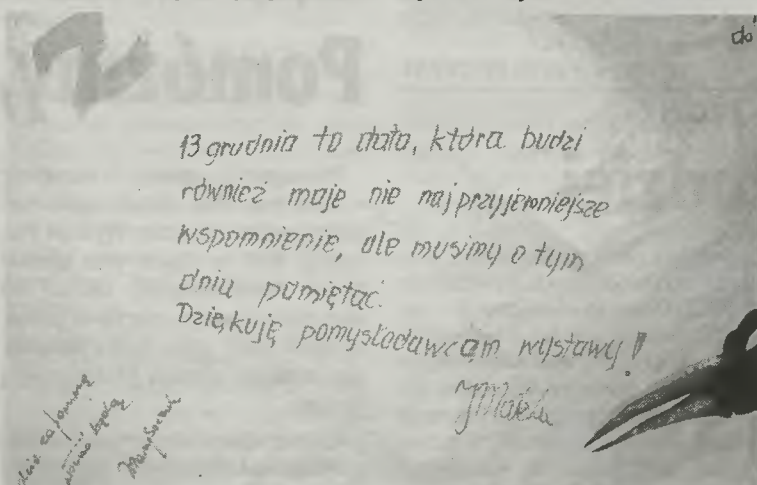 Pomóż
do
13 grudnia to data, która budzi
również moje nie najprzyjemniejsze
wspomnienie, ale musimy o tym
dniu pamiętać.
Dziękuję pomysłodawcom wystawy!